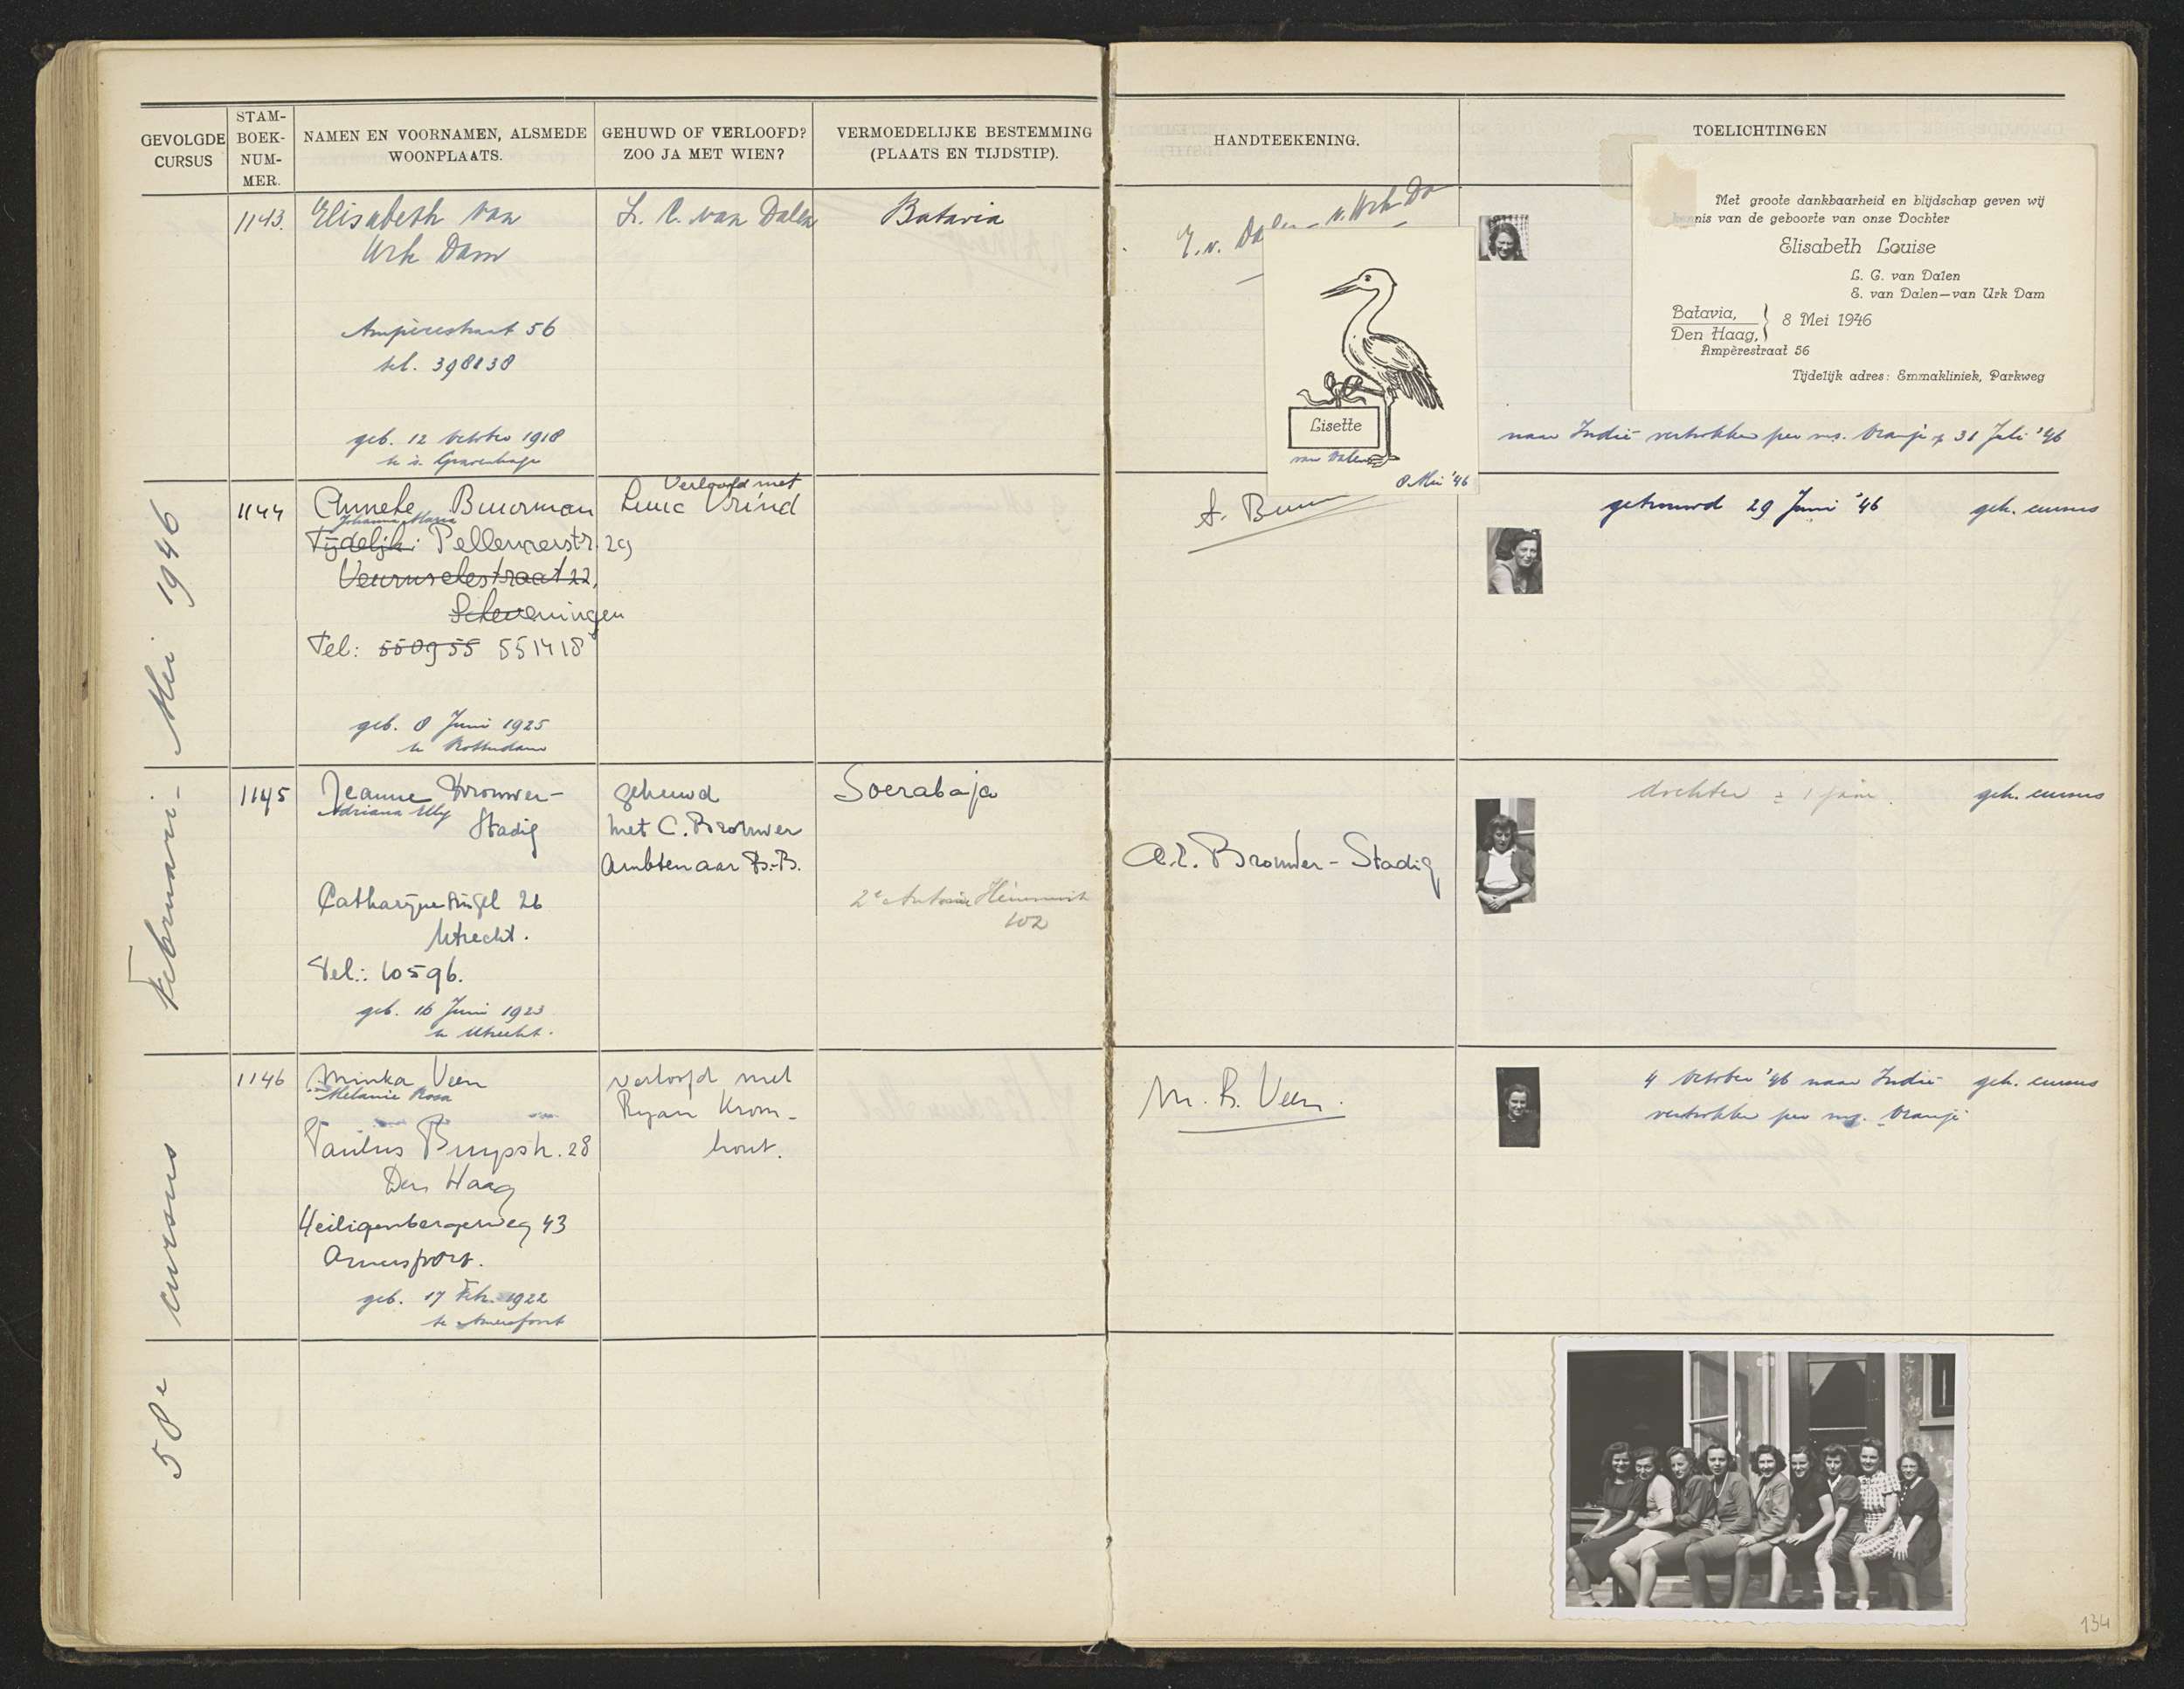 GEVOLGDE CURSUS
STAM-
BOEK-
NUM-
MER.
NAMEN EN VOORNAMEN, ALSMEDE
WOONPLAATS.
GEHUWD OF VERLOOFD?
ZOO JA MET WIEN?
VERMOEDELIJKE BESTEMMING
(PLAATS EN TIJDSTIP).
HANDTEEKENING.
TOELICHTINGEN
58e cursus Februari - Mei 1946
1143.
Elisabeth van
Urk Dam
Ampèrestraat 56
tel. 398838
geb. 12 october 1918
te 's Gravenhage
L. C. van Dalen
Batavia
E. v. Dalen - v. Urk Da
Lisette
van Dalen
8 Mei '46
Met groote dankbaarheid en blijdschap geven wij
nis van de geboorte van onze Dochter
Elisabeth Louise
L. G. van Dalen
E. van Dalen—van Urk Dam
Batavia,
Den Haag,
8 Mei 1946
Ampèrestraat 56
Tijdelijk adres: Emmakliniek, Parkweg
naar Indië vertrokken per ms. Oranje op 31 Juli '46
1144
Anneke Buurman
Johanna Maria
Tijdelijk: Pellenaerstr. 29
straat 22,
Scheveningen
Tel: 550955 551418
geb. 8 Juni 1925
te Rotterdam
Verloofd met
Luuc Vrind
A. Buu
getrouwd 29 Juni '46
geh. cursus
1145
Jeanne Brouwer-
Adriana Elly
Stadig
Catharijnesingel 26
Utrecht.
Tel.: 10596.
geb. 16 Juni 1923
te Utrecht.
gehuwd
met C. Brouwer
Ambtenaar B.-B.
Soerabaja
2e Antonie Heinsius
102
A.E. Brouwer - Stadig
dochter ± 1 jaar.
geh. cursus
1146
Minka Veen
Melanie Rosa
Paulus Buysstr. 28
Den Haag
Heiligenbergerweg 43
Amersfoort.
geb. 17 Feb. 1922
te Amersfoort
verloofd met
Ryan Krom-
hout.
M. R. Veen.
4 October '46 naar Indië
geh. cursus
vertrokken per ms. Oranje
134